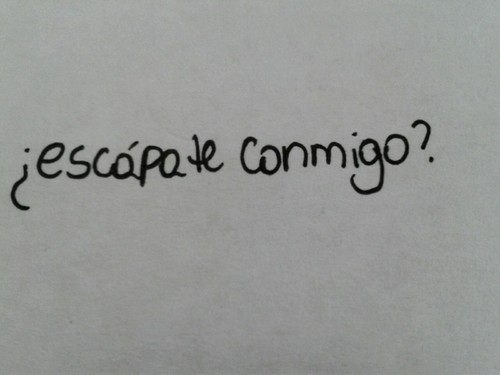 ¿escápate conmigo?